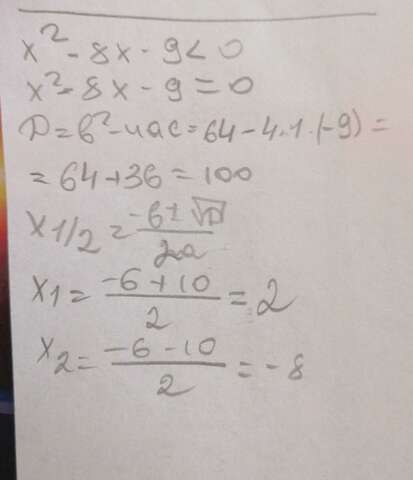 x² - 8x - 9 < 0
x² - 8x - 9 = 0
D = b² - 4ac = 64 - 4·1·(-9) =
= 64 + 36 = 100
x1/2 = -b ± √D / 2a
x1 = -6 + 10 / 2 = 2
x2 = -6 - 10 / 2 = -8